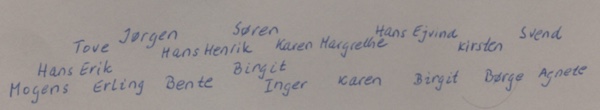 Jørgen Søren Hans Ejvind Svend
Tove Hans Henrik Karen Margrethe Kirsten
Hans Erik Birgit
Mogens Erling Bente Inger Karen Birgit Børge Agnete